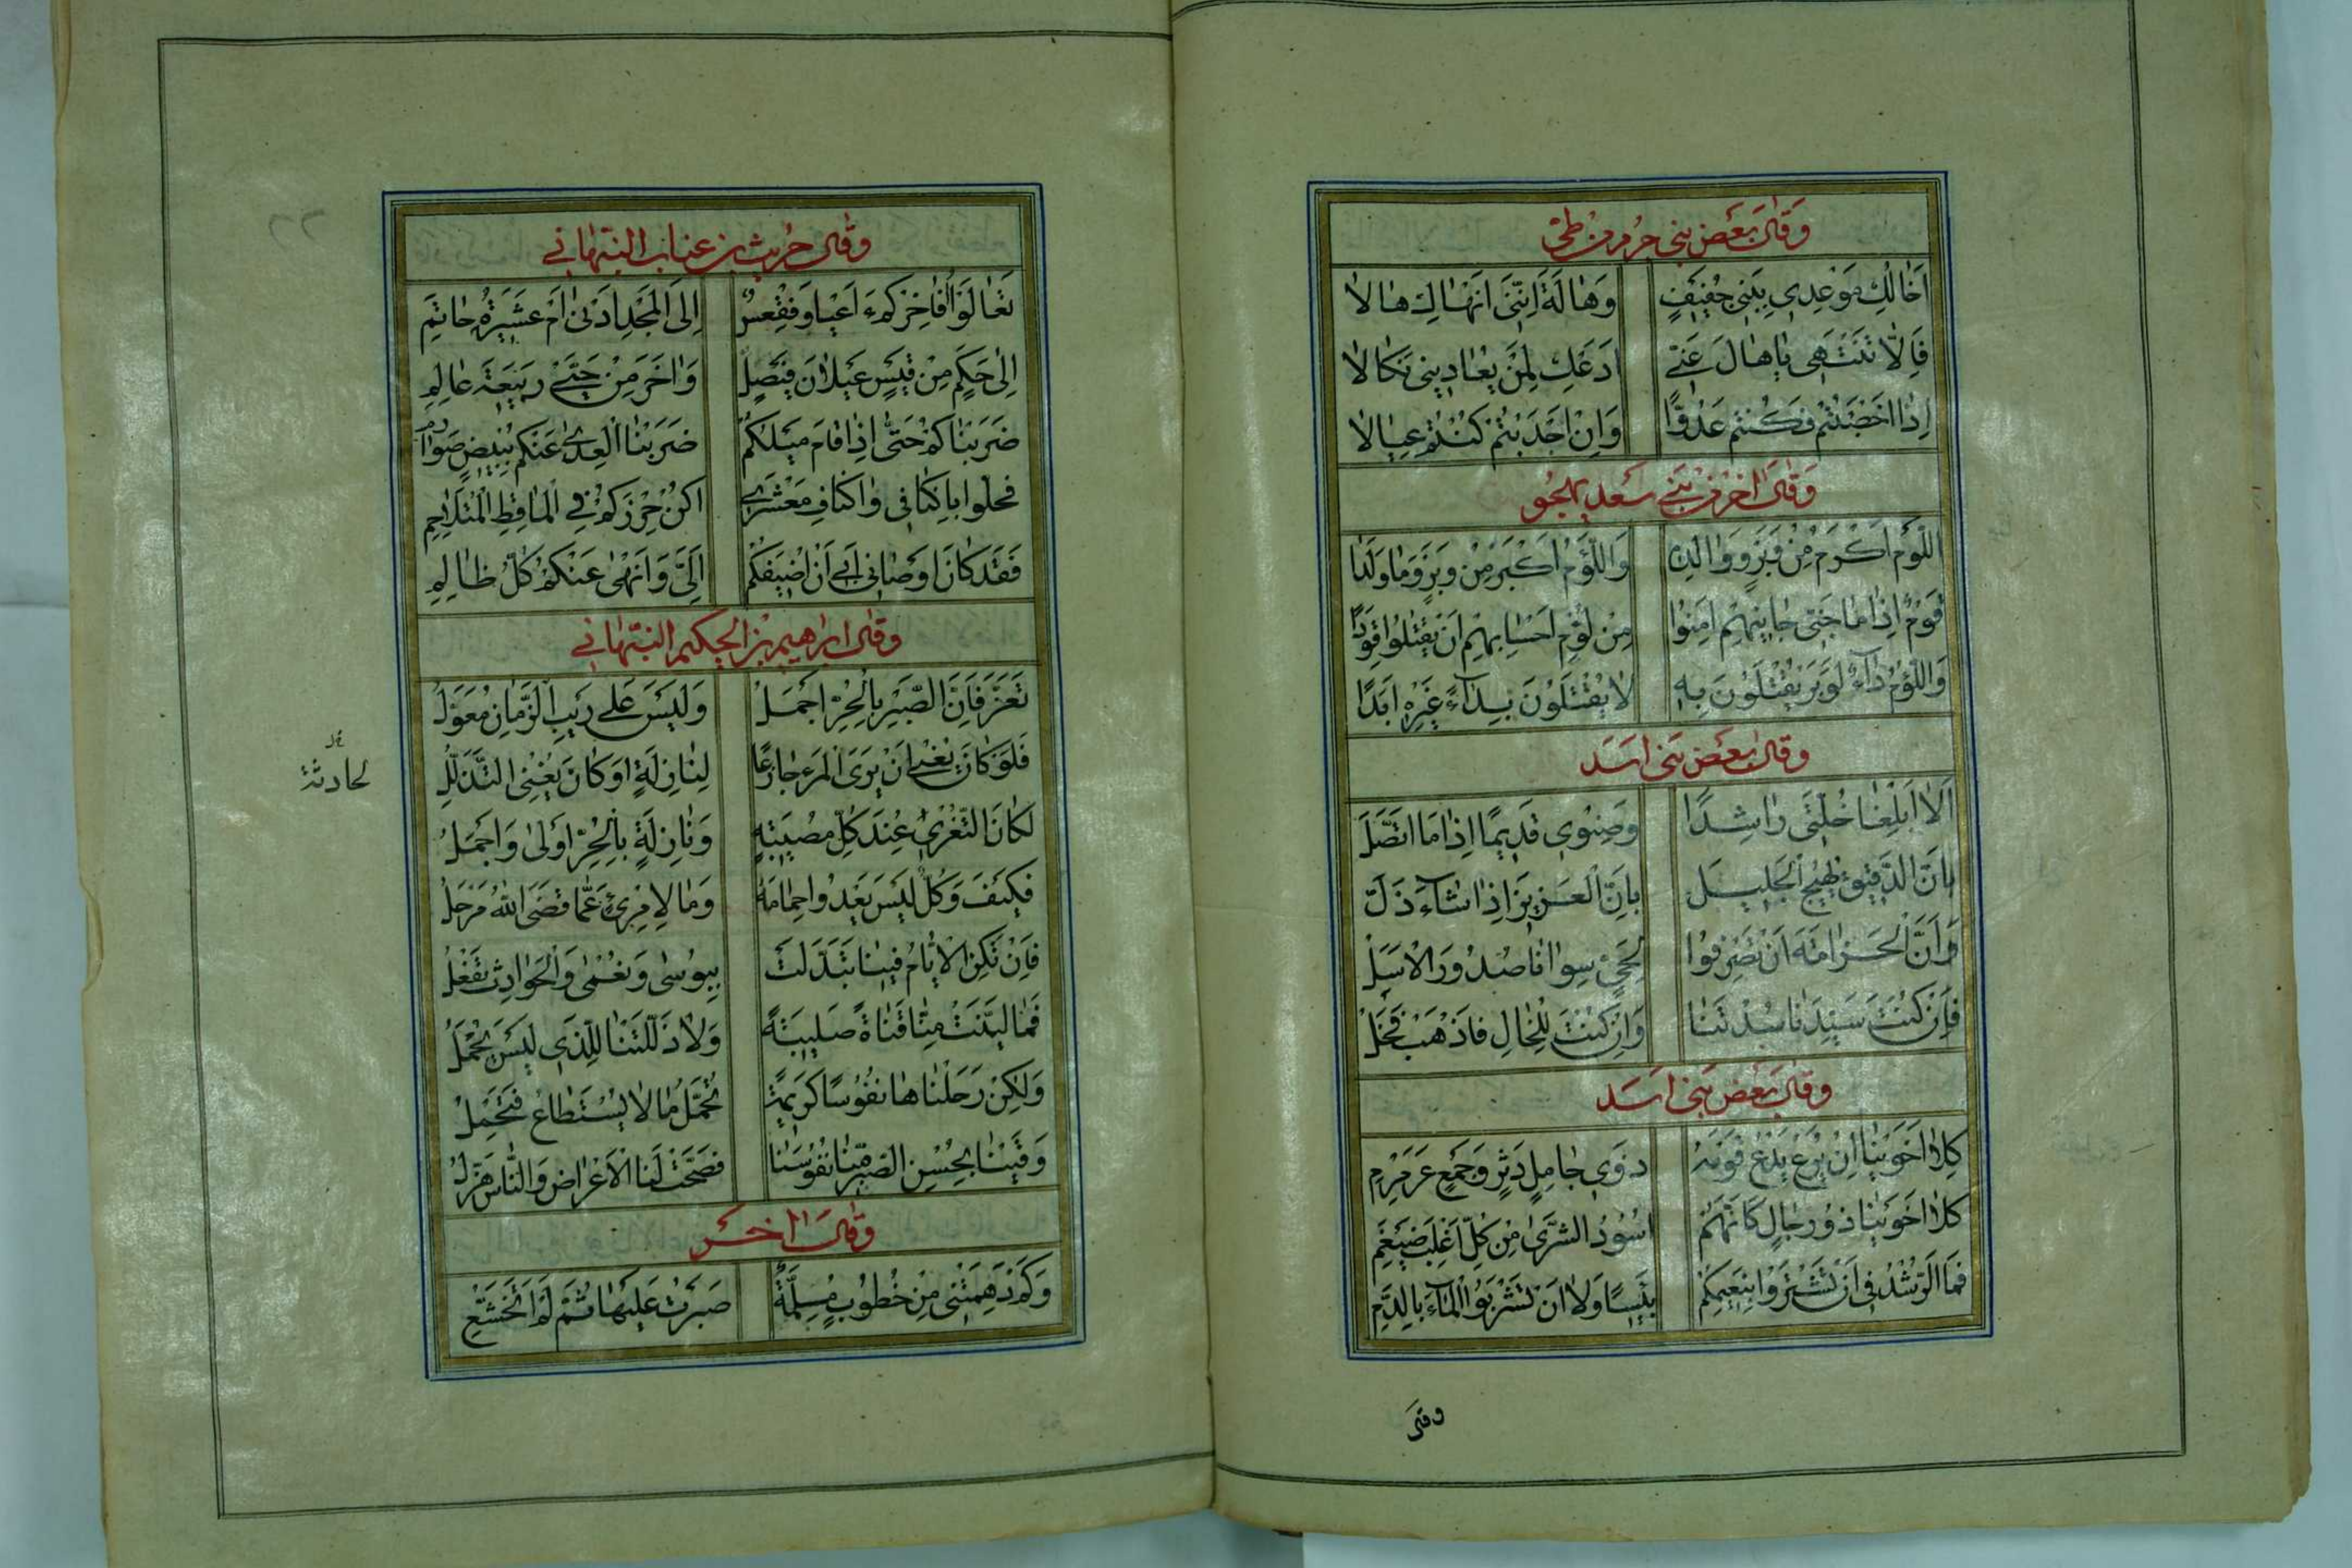 وَقَالَ بَعْضُ بَنِي جَرْمٍ مِنْ طَيّ
اَخَالُكَ مُوْعِدِي بِبَنِي جُفَيْفٍ وَهَالَةَ اِنَّنِي اَنْهَاكَ هَالَا
فَاِلَّا تَنْتَهِي يَا هَالَ عَنِّي اَدَعْكِ لِمَنْ يُعَادِينِي نَكَالَا
اِذَا اَخْصَبْتُمُ فَكُنْتُمْ عَدُوًّا وَاِنْ اَجْدَبْتُمُ كُنْتُمْ عِيَالَا
وَقَالَ اٰخَرُ مِنْ بَنِي سَعْدٍ يَهْجُو
اَللُّؤْمُ اَكْرَمُ مِنْ وَبْرٍ وَوَالِدِهِ وَاللُّؤْمُ اَكْبَرُ مِنْ وَبْرٍ وَمَا وَلَدَا
قَوْمٌ اِذَا مَا جَنَى جَانِيهِمِ اَمِنُوا مِنْ لُؤْمِ اَحْسَابِهِمْ اَنْ يُقْتَلُوا قَوَدًا
وَاللُّؤْمُ دَآءٌ لِوَبْرٍ يُقْتَلُونَ بِهِ لَا يُقْتَلُونَ بِدَآءٍ غَيْرِهِ اَبَدًا
وَقَالَ بَعْضُ بَنِي اَسَد
اَلَا اَبْلِغَا خُلَّتِي رَاشِدًا وَصِنْوِي قَدِيمًا اِذَا مَا اتَّصَلَ
بِاَنَّ الدَّقِيقَ يُهِيجُ الْجَلِيلَ بِاَنَّ الْعَزِيزَ اِذَا شَآءَ ذَلَّ
وَاَنَّ الْحَزَامَةَ اَنْ تَصْرِفُوا لِحَيٍّ سِوَانَا صُدُورَ الْاَسَلْ
فَاِنْ كُنْتَ سَيِّدَنَا سُدْتَنَا وَاِنْ كُنْتَ لِلْخَالِ فَاذْهَبْ فَخَلْ
وَقَالَ بَعْضُ بَنِي اَسَد
كِلَا اَخَوَيْنَا اِنْ يُرَعْ يَدْعُ قَوْمَهُ ذَوِي جَامِلٍ دَثْرٍ وَجَمْعٍ عَرَمْرَمِ
كِلَا اَخَوَيْنَا ذُو رِجَالٍ كَاَنَّهُمْ اُسُوُدُ الشَّرَى مِنْ كُلِّ اَغْلَبَ ضَيْغَمِ
فَمَا الرُّشْدُ فِي اَنْ تَشْتَرُوا بِنَعِيمِكُمْ بَئِيسًا وَلَا اَنْ تَشْرَبُوا الْمَآءَ بِالدَّمِ
وَقَالَ حُرَيْثُ بْنُ عَنَّابٍ النَّبْهَانِي
تَعَالَوْا اُفَاخِرْكُمْ ءَاَعْيَا وَفَقْعَسٌ اِلَى الْمَجْدِ اَدْنَى اَمْ عَشِيرَةُ حَاتِمِ
اِلَى حَكَمٍ مِنْ قَيْسِ عَيْلَانَ فَيْصَلٍ وَاٰخَرَ مِنْ حَيَّيْ رَبِيعَةَ عَالِمِ
ضَرَبْنَاكُمُ حَتَّى اِذَا قَامَ مَيْلُكُمْ ضَرَبْنَا الْعِدَى عَنْكُمْ بِبِيضٍ صَوَارِمِ
فَحُلُّوا بِاَكْنَافِي وَاَكْنَافِ مَعْشَرِي اَكُنْ حِرْزَكُمْ فِي الْمَاقِطِ الْمُتَلَاحِمِ
فَقَدْ كَانَ اَوْصَانِي اَبِي اَنْ اُضِيفَكُمْ اِلَيَّ وَاَنْهَى عَنْكُمُ كُلَّ ظَالِمِ
وَقَالَ اِبْرَاهِيمُ بْنُ الْحَكِيمِ النَّبْهَانِي
تَعَزَّ فَاِنَّ الصَّبْرَ بِالْحُرِّ اَجْمَلُ وَلَيْسَ عَلَى رَيْبِ الزَّمَانِ مُعَوَّلُ
فَلَوْ كَانَ يُغْنِي اَنْ يُرَى الْمَرْءُ جَازِعًا لِنَازِلَةٍ اَوْ كَانَ يُغْنِي التَّذَلُّلُ
لحادثة
لَكَانَ التَّعَزِّي عِنْدَ كُلِّ مُصِيبَةٍ وَنَازِلَةٍ بِالْحُرِّ اَوْلَى وَاَجْمَلُ
فَكَيْفَ وَكُلٌّ لَيْسَ يَعْدُوا حِمَامَهُ وَمَا لِامْرِئٍ عَمَّا قَضَى اللهُ مَزْحَلُ
فَاِنْ تَكُنِ الْاَيَّامُ فِينَا تَبَدَّلَتْ بِبُوسَى وَنُعْمَى وَالْحَوَادِثُ تَفْعَلُ
فَمَا لَيَّنَتْ مِنَّا قَنَاةً صَلِيبَةً وَلَا ذَلَّلَتْنَا لِلَّذِي لَيْسَ يَجْمُلُ
وَلٰكِنْ رَحَلْنَاهَا نُفُوسًا كَرِيمَةً تُحَمَّلُ مَا لَا يُسْتَطَاعُ فَتَحْمِلُ
وَقَيْنَا بِحُسْنِ الصَّبْرِ مِنَّا نُفُوسَنَا فَصَحَّتْ لَنَا الْاَعْرَاضُ وَالنَّاسُ هُزَّلُ
وَقَالَ اٰخَرُ
وَكَمْ دَهِمَتْنِي مِنْ خُطُوبٍ مُلِمَّةٍ صَبَرْتُ عَلَيْهَا ثُمَّ لَمْ اَتَخَشَّعِ